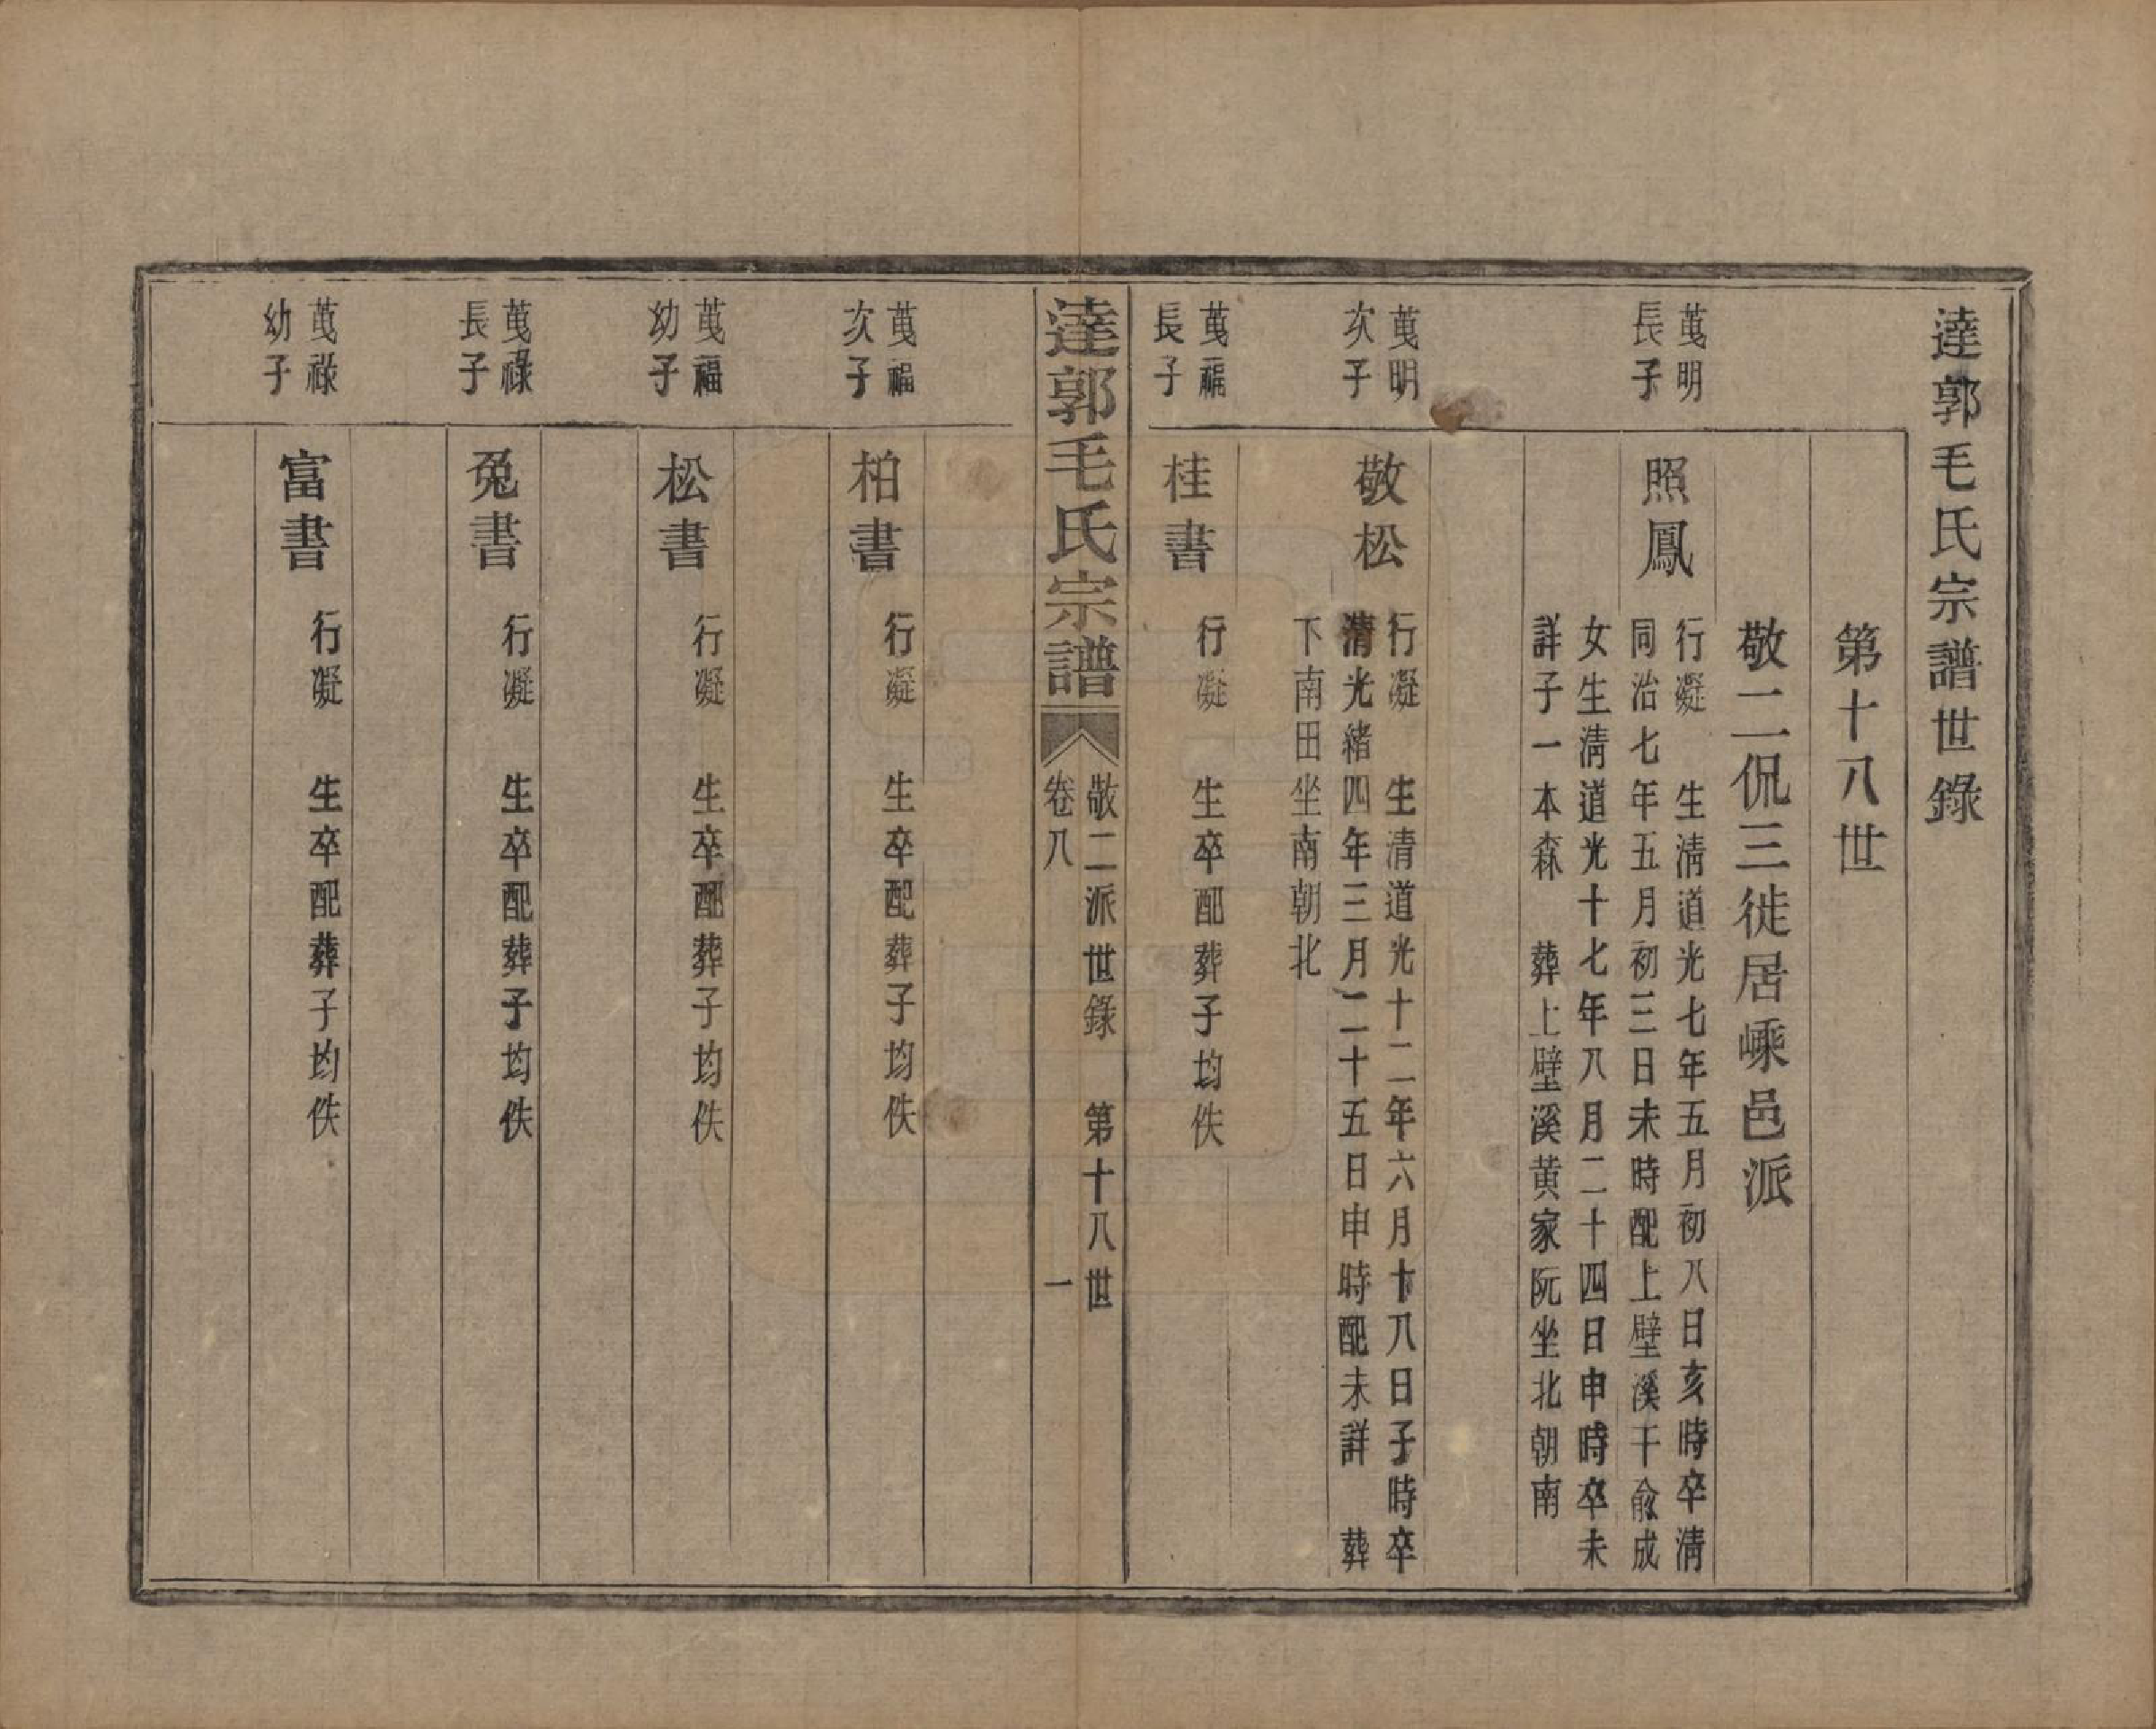 達郭毛氏宗譜世錄
第十八世
敬二侃三徙居嵊邑派
萬明
長子
照鳳
行凝　生清道光七年五月初八日亥時卒清
同治七年五月初三日未時配上壁溪干俞成
女生清道光十七年八月二十四日申時卒未
詳子一本森　葬上壁溪黄家阮坐北朝南
萬明
次子
敬松
行凝　生清道光十二年六月十八日子時卒
清光緒四年三月二十五日申時配未詳　葬
下南田坐南朝北
萬福
長子
桂書
行凝　生卒配葬子均佚
達郭毛氏宗譜
敬二派世錄　第十八世
卷八　一
萬福
次子
柏書
行凝　生卒配葬子均佚
萬福
幼子
松書
行凝　生卒配葬子均佚
萬祿
長子
兔書
行凝　生卒配葬子均佚
萬祿
幼子
富書
行凝　生卒配葬子均佚